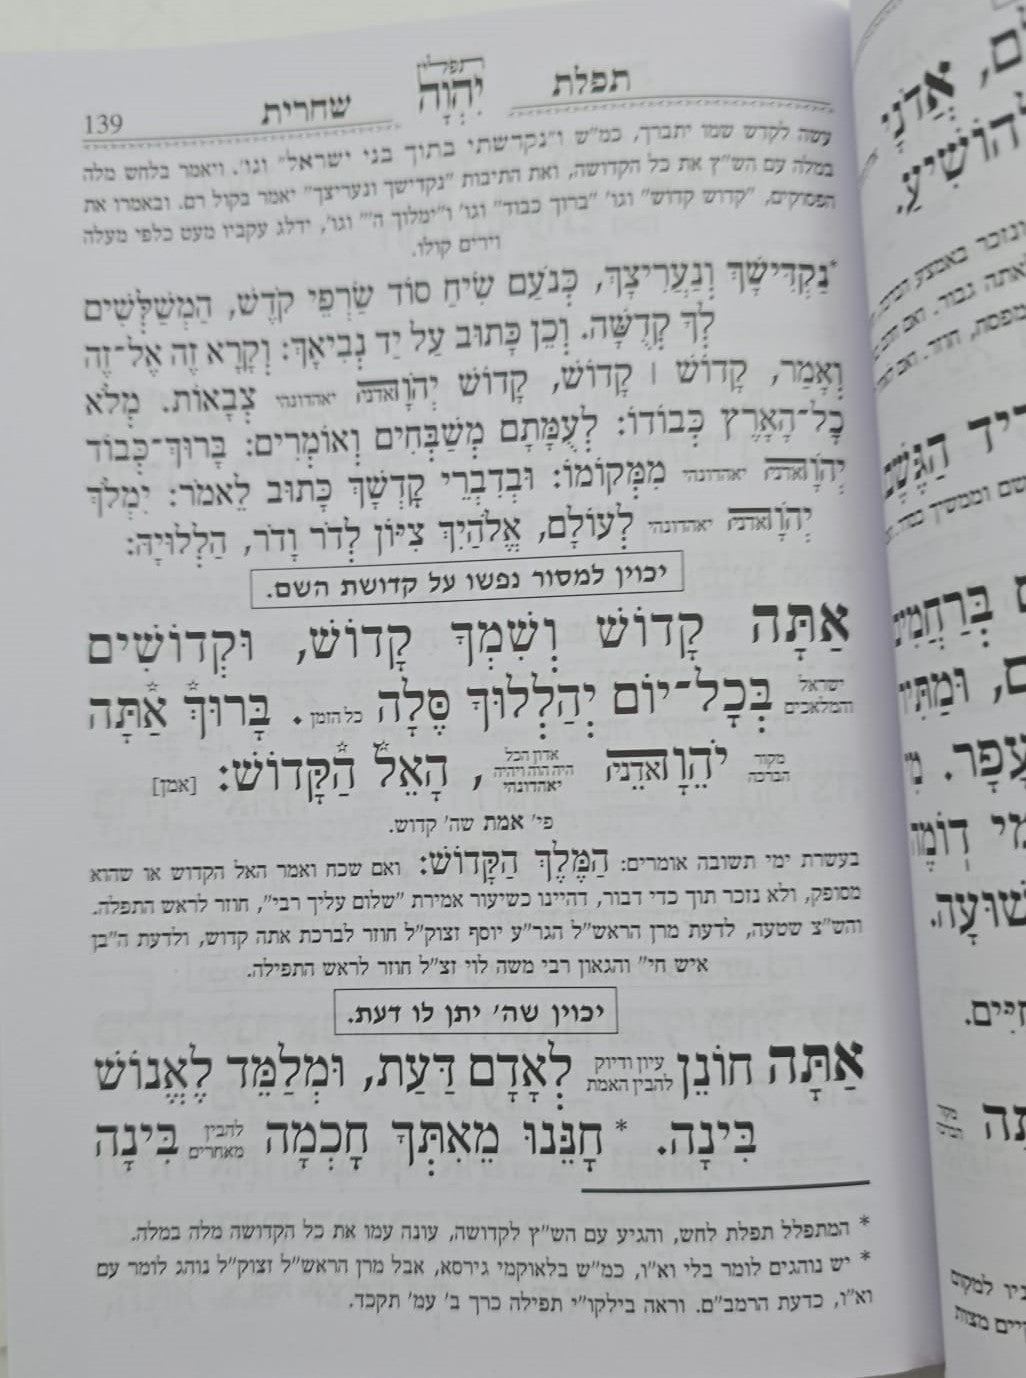 תפלת תפלין יְהֹוָה שחרית 139
עשה לקדש שמו יתברך, כמ"ש ו"נקדשתי בתוך בני ישראל" וגו'. ויאמר בלחש מלה
במלה עם הש"ץ את כל הקדושה, ואת התיבות "נקדישך ונעריצך" יאמר בקול רם. ובאמרו את
הפסוקים, "קדוש קדוש" וגו' "ברוך כבוד" וגו' ו"ימלוך ה'" וגו', ידלג עקביו מעט כלפי מעלה
וירים קולו.
*נַקְדִּישָׁךְ וְנַעֲרִיצָךְ, כְּנֹעַם שִׂיחַ סוֹד שַׂרְפֵי קֹדֶשׁ, הַמְשַׁלְּשִׁים
לְךָ קְדֻשָּׁה. וְכֵן כָּתוּב עַל יַד נְבִיאָךְ: וְקָרָא זֶה אֶל־זֶה
וְאָמַר, קָדוֹשׁ | קָדוֹשׁ, קָדוֹשׁ יְהֹוָה אדניה יאהדונהי צְבָאוֹת. מְלֹא
כָל־הָאָרֶץ כְּבוֹדוֹ: לְעֻמָּתָם מְשַׁבְּחִים וְאוֹמְרִים: בָּרוּךְ־כְּבוֹד
יְהֹוָה אדניה יאהדונהי מִמְּקוֹמוֹ: וּבְדִבְרֵי קָדְשָׁךְ כָּתוּב לֵאמֹר: יִמְלֹךְ
יְהֹוָה אדניה יאהדונהי לְעוֹלָם, אֱלֹהַיִךְ צִיּוֹן לְדֹר וָדֹר, הַלְלוּיָהּ:
יכוין למסור נפשו על קדושת השם.
אַתָּה קָדוֹשׁ וְשִׁמְךָ קָדוֹשׁ, וּקְדוֹשִׁים
ישראל והמלאכים בְּכָל־יוֹם יְהַלְלוּךָ סֶּלָה כל הזמן. בָּרוּךְ אַתָּה
מקור הברכה יֹהֵוָה אדניה אדון הכל היה הוה ויהיה יאהדונהי, הָאֵל הַקָּדוֹשׁ: [אמן]
פי' אמת שה' קדוש.
בעשרת ימי תשובה אומרים: הַמֶּלֶךְ הַקָּדוֹשׁ: ואם שכח ואמר האל הקדוש או שהוא
מסופק, ולא נזכר תוך כדי דבור, דהיינו כשיעור אמירת "שלום עליך רבי", חוזר לראש התפלה.
והש"צ שטעה, לדעת מרן הראש"ל הגר"ע יוסף זצוק"ל חוזר לברכת אתה קדוש, ולדעת ה"בן
איש חי" והגאון רבי משה לוי זצ"ל חוזר לראש התפילה.
יכוין שה' יתן לו דעת.
אַתָּה חוֹנֵן עיון ודיוק להבין האמת לְאָדָם דַּעַת, וּמְלַמֵּד לֶאֱנוֹשׁ
בִּינָה. *חָנֵּנוּ מֵאִתְּךָ חָכְמָה להבין מאחרים בִּינָה
* המתפלל תפלת לחש, והגיע עם הש"ץ לקדושה, עונה עמו את כל הקדושה מלה במלה.
* יש נוהגים לומר בלי וא"ו, כמ"ש בלאוקמי גירסא, אבל מרן הראש"ל זצוק"ל נוהג לומר עם
וא"ו, כדעת הרמב"ם. וראה בילקו"י תפילה כרך ב' עמ' תקכד.